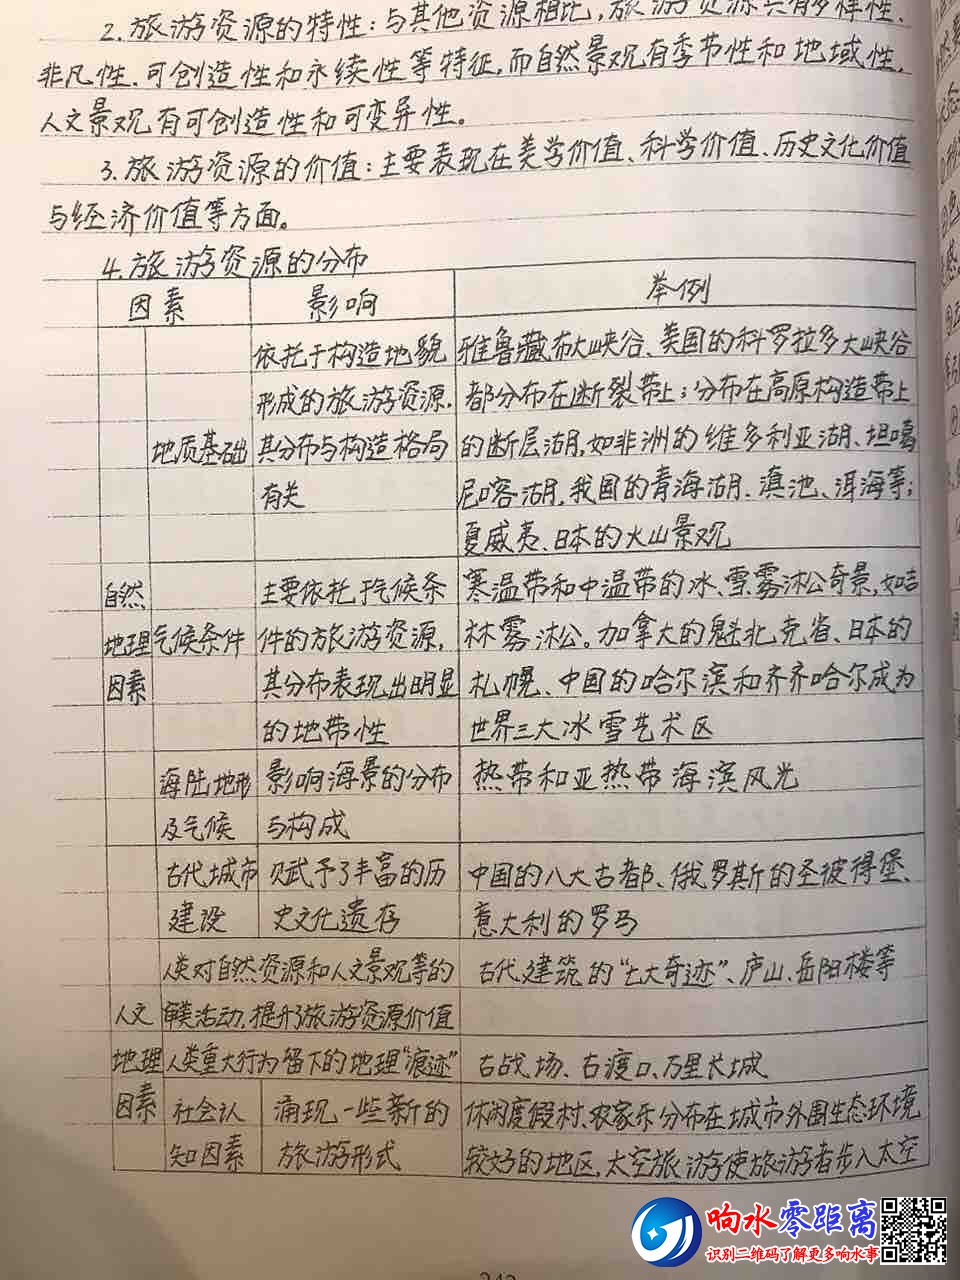 2.旅游资源的特性:与其他资源相比,旅游资源具有多样性、
非凡性、可创造性和永续性等特征,而自然景观有季节性和地域性,
人文景观有可创造性和可变异性。
3.旅游资源的价值:主要表现在美学价值、科学价值、历史文化价值
与经济价值等方面。
4.旅游资源的分布
因素 影响 举例
依托于构造地貌 雅鲁藏布大峡谷、美国的科罗拉多大峡谷
形成的旅游资源, 都分布在断裂带上;分布在高原构造带上
地质基础 其分布与构造格局 的断层湖,如非洲的维多利亚湖、坦噶
有关 尼喀湖,我国的青海湖、滇池、洱海等;
夏威夷、日本的火山景观
自然 主要依托于气候条 寒温带和中温带的冰、雪、雾淞奇景,如吉
地理 气候条件 件的旅游资源, 林雾淞。加拿大的魁北克省、日本的
因素 其分布表现出明显 札幌、中国的哈尔滨和齐齐哈尔成为
的地带性 世界三大冰雪艺术区
海陆地形 影响海景的分布 热带和亚热带海滨风光
及气候 与构成
古代城市 赋予了丰富的历 中国的八大古都、俄罗斯的圣彼得堡、
建设 史文化遗存 意大利的罗马
人类对自然资源和人文景观等的 古代建筑的“七大奇迹”、庐山、岳阳楼等
人文 审美活动,提升了旅游资源价值
地理 人类重大行为留下的地理“痕迹” 古战场、古渡口、万里长城
因素 社会认 涌现一些新的 休闲度假村、农家乐分布在城市外围生态环境
知因素 旅游形式 较好的地区,太空旅游使旅游者步入太空
响水零距离
识别二维码了解更多响水事